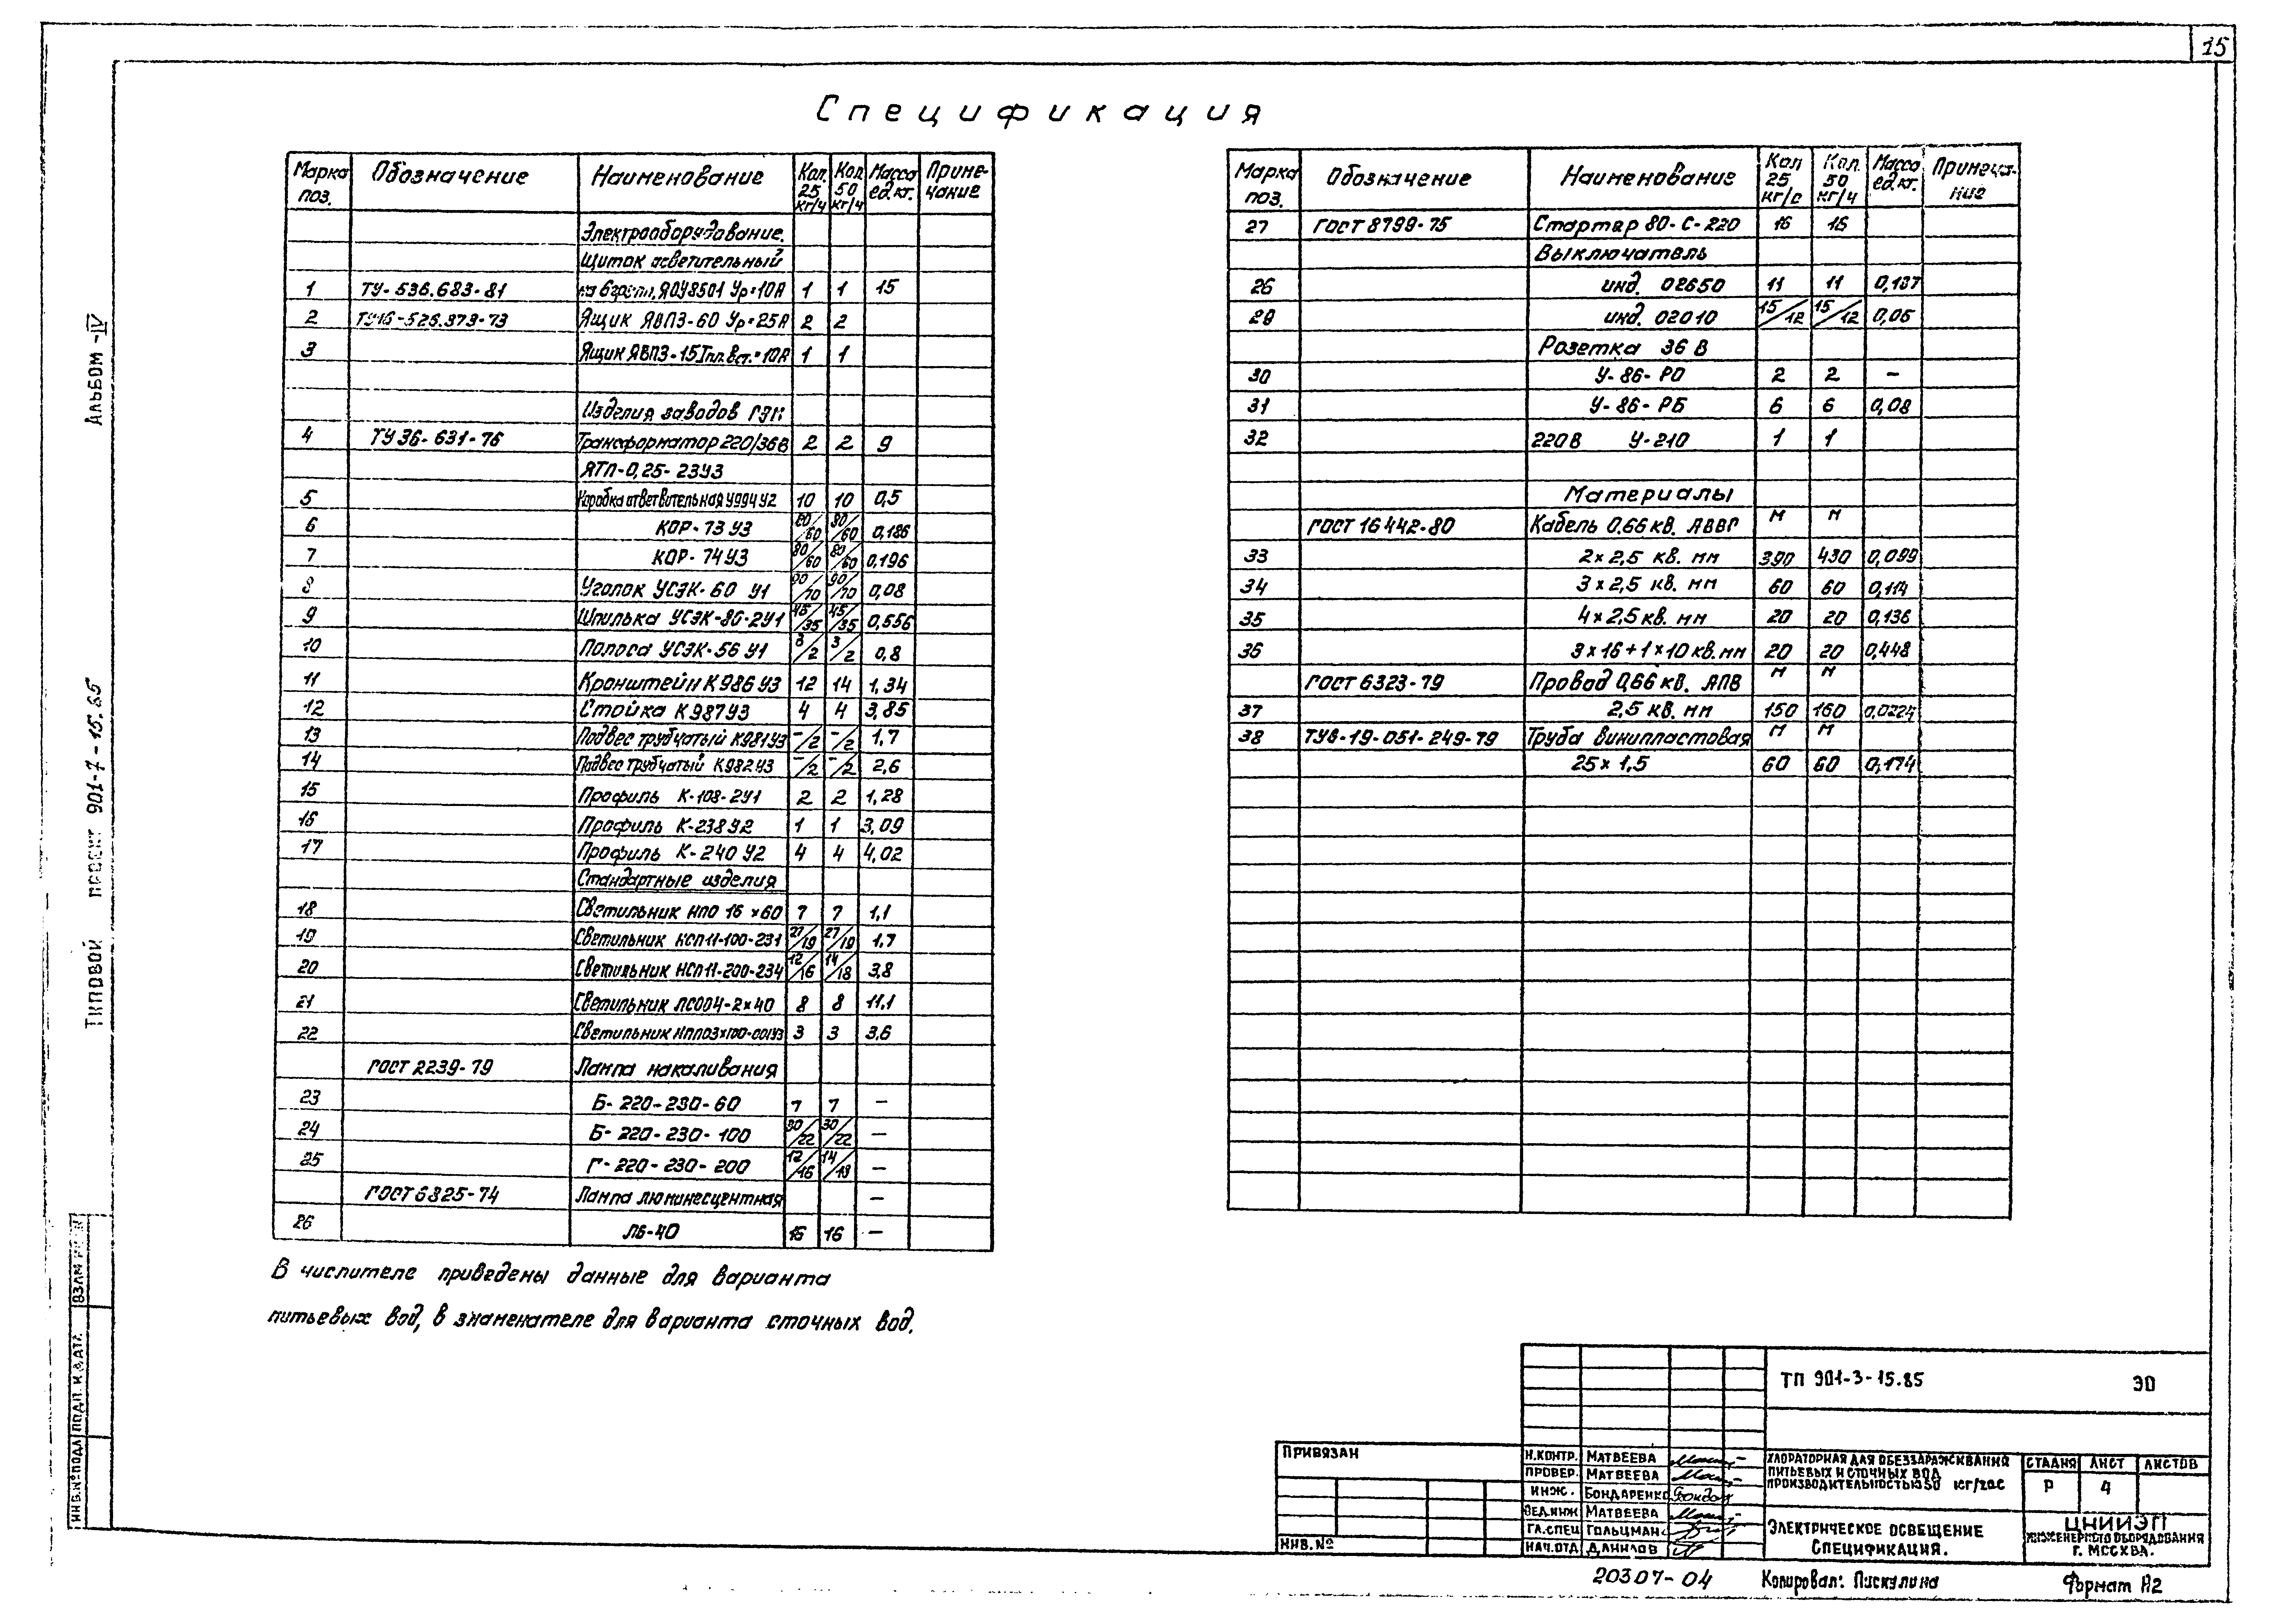 15
Спецификация
Марка поз. Обозначение Наименование Кол. 25 кг/ч Кол 50 кг/ч Масса ед.кг. Приме-чание
Электрооборудование.
Щиток осветительный
1 ТУ-536.683-81 на 6 групп, ЯОУ8501 Ур=10А 1 1 15
2 ТУ16-526.979-73 Ящик ЯВПЗ-60 Ур=25А 2 2
3 Ящик ЯВПЗ-15 Iпл.вст.=10А 1 1
Изделия заводов ГЭМ
4 ТУ 36-631-76 Трансформатор 220/36В 2 2 9
ЯТП-0,25-23У3
5 Коробка ответвительная У994У2 10 10 0,5
6 КОР-73У3 80/60 80/60 0,186
7 КОР-74У3 80/60 80/60 0,196
8 Уголок УСЭК-60 У1 90/70 90/70 0,08
9 Шпилька УСЭК-86-2У1 45/35 45/35 0,556
10 Полоса УСЭК-56 У1 3/2 3/2 0,8
11 Кронштейн К986У3 12 14 1,34
12 Стойка К987У3 4 4 3,85
13 Подвес трубчатый К981У3 -/2 -/2 1,7
14 Подвес трубчатый К982У3 -/2 -/2 2,6
15 Профиль К-108-2У1 2 2 1,28
16 Профиль К-238У2 1 1 3,09
17 Профиль К-240У2 4 4 4,02
Стандартные изделия
18 Светильник НПО 16×60 7 7 1,1
19 Светильник НСП11-100-231 27/19 27/19 1,7
20 Светильник НСП11-200-234 12/16 14/18 3,8
21 Светильник ЛСОО4-2×40 8 8 11,1
22 Светильник НПП03×100-001У3 3 3 3,6
ГОСТ 2239-79 Лампа накаливания
23 Б-220-230-60 7 7 —
24 Б-220-230-100 30/22 30/22 —
25 Г-220-230-200 12/16 14/18 —
ГОСТ 6825-74 Лампа люминесцентная —
26 ЛБ-40 16 16 —
В числителе приведены данные для варианта
питьевых вод, в знаменателе для варианта сточных вод.
Марка поз. Обозначение Наименование Кол 25 кг/с Кол. 50 кг/ч Масса ед.кг. Примеча-ние
27 ГОСТ 8799-75 Стартер 80-С-220 16 16
Выключатель
26 инд. 02650 11 11 0,137
29 инд. 02010 15/12 15/12 0,05
Розетка 36 В
30 У-86-РО 2 2 —
31 У-86-РБ 6 6 0,08
32 220В У-210 1 1
Материалы
ГОСТ 16442-80 Кабель 0.66 кв. АВВГ м м
33 2×2,5 кв. мм 390 430 0,099
34 3×2,5 кв. мм 60 60 0,114
35 4×2,5 кв. мм 20 20 0,136
36 3×16+1×10 кв.мм 20 20 0,448
ГОСТ 6323-79 Провод 0,66 кв. АПВ м м
37 2,5 кв. мм 150 160 0,0224
38 ТУ6-19-051-249-79 Труба винипластовая м м
25×1,5 60 60 0,174
Альбом-IV
Типовой проект 901-7-15.85
ИНВ.№ПОДЛ ПОДП. И ДАТА ВЗАМ
ТП 901-3-15.85 ЭО
ПРИВЯЗАН
ИНВ.№
Н.КОНТР. МАТВЕЕВА
ПРОВЕР. МАТВЕЕВА
ИНЖ. БОНДАРЕНКО
ВЕД.ИНЖ МАТВЕЕВА
ГЛ.СПЕЦ ГОЛЬЦМАН
НАЧ.ОТД ДАНИЛОВ
ХЛОРАТОРНАЯ ДЛЯ ОБЕЗЗАРАЖИВАНИЯ
ПИТЬЕВЫХ И СТОЧНЫХ ВОД
ПРОИЗВОДИТЕЛЬНОСТЬЮ 50 кг/час
СТАДИЯ ЛИСТ ЛИСТОВ
Р 4
ЭЛЕКТРИЧЕСКОЕ ОСВЕЩЕНИЕ
СПЕЦИФИКАЦИЯ.
ЦНИИЭП
ИНЖЕНЕРНОГО ОБОРУДОВАНИЯ
Г. МОСКВА.
20307-04 Копировал: Пискулина Формат А2